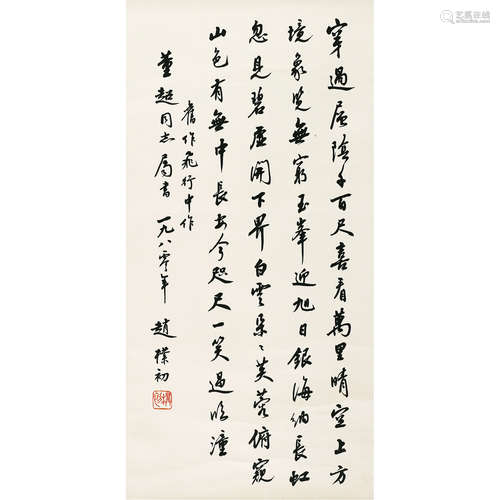 穿過層陰千百尺喜看萬里晴空上方
境象覽無窮玉峯迎旭日銀海納長虹
忽見碧虛開下界白雲朵〻芙蓉俯窺
山色有無中長安今咫尺一笑過臨潼
舊作飛行中作
董超同志屬書 一九八零年 趙樸初